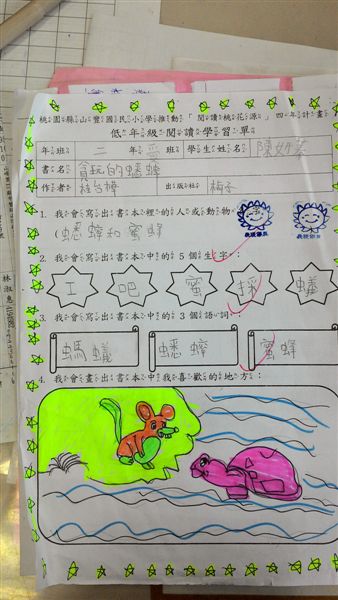 桃園縣山豐國民小學推動「閱讀桃花源」四年計畫
低年級閱讀學習單
年班 二年 班 學生姓名 陳
書名 貪玩的蟋蟀
作者 出版社
1. 我會寫出書本裡的人或動物
(蟋蟀和蜜蜂
2. 我會寫出書本中的5個生字:
工 吧 蜜 蟻
3. 我會寫出書本中的3個語詞
螞蟻 蟋蟀 蜜蜂
4. 我會畫出書本中我喜歡的地方:
林淑惠